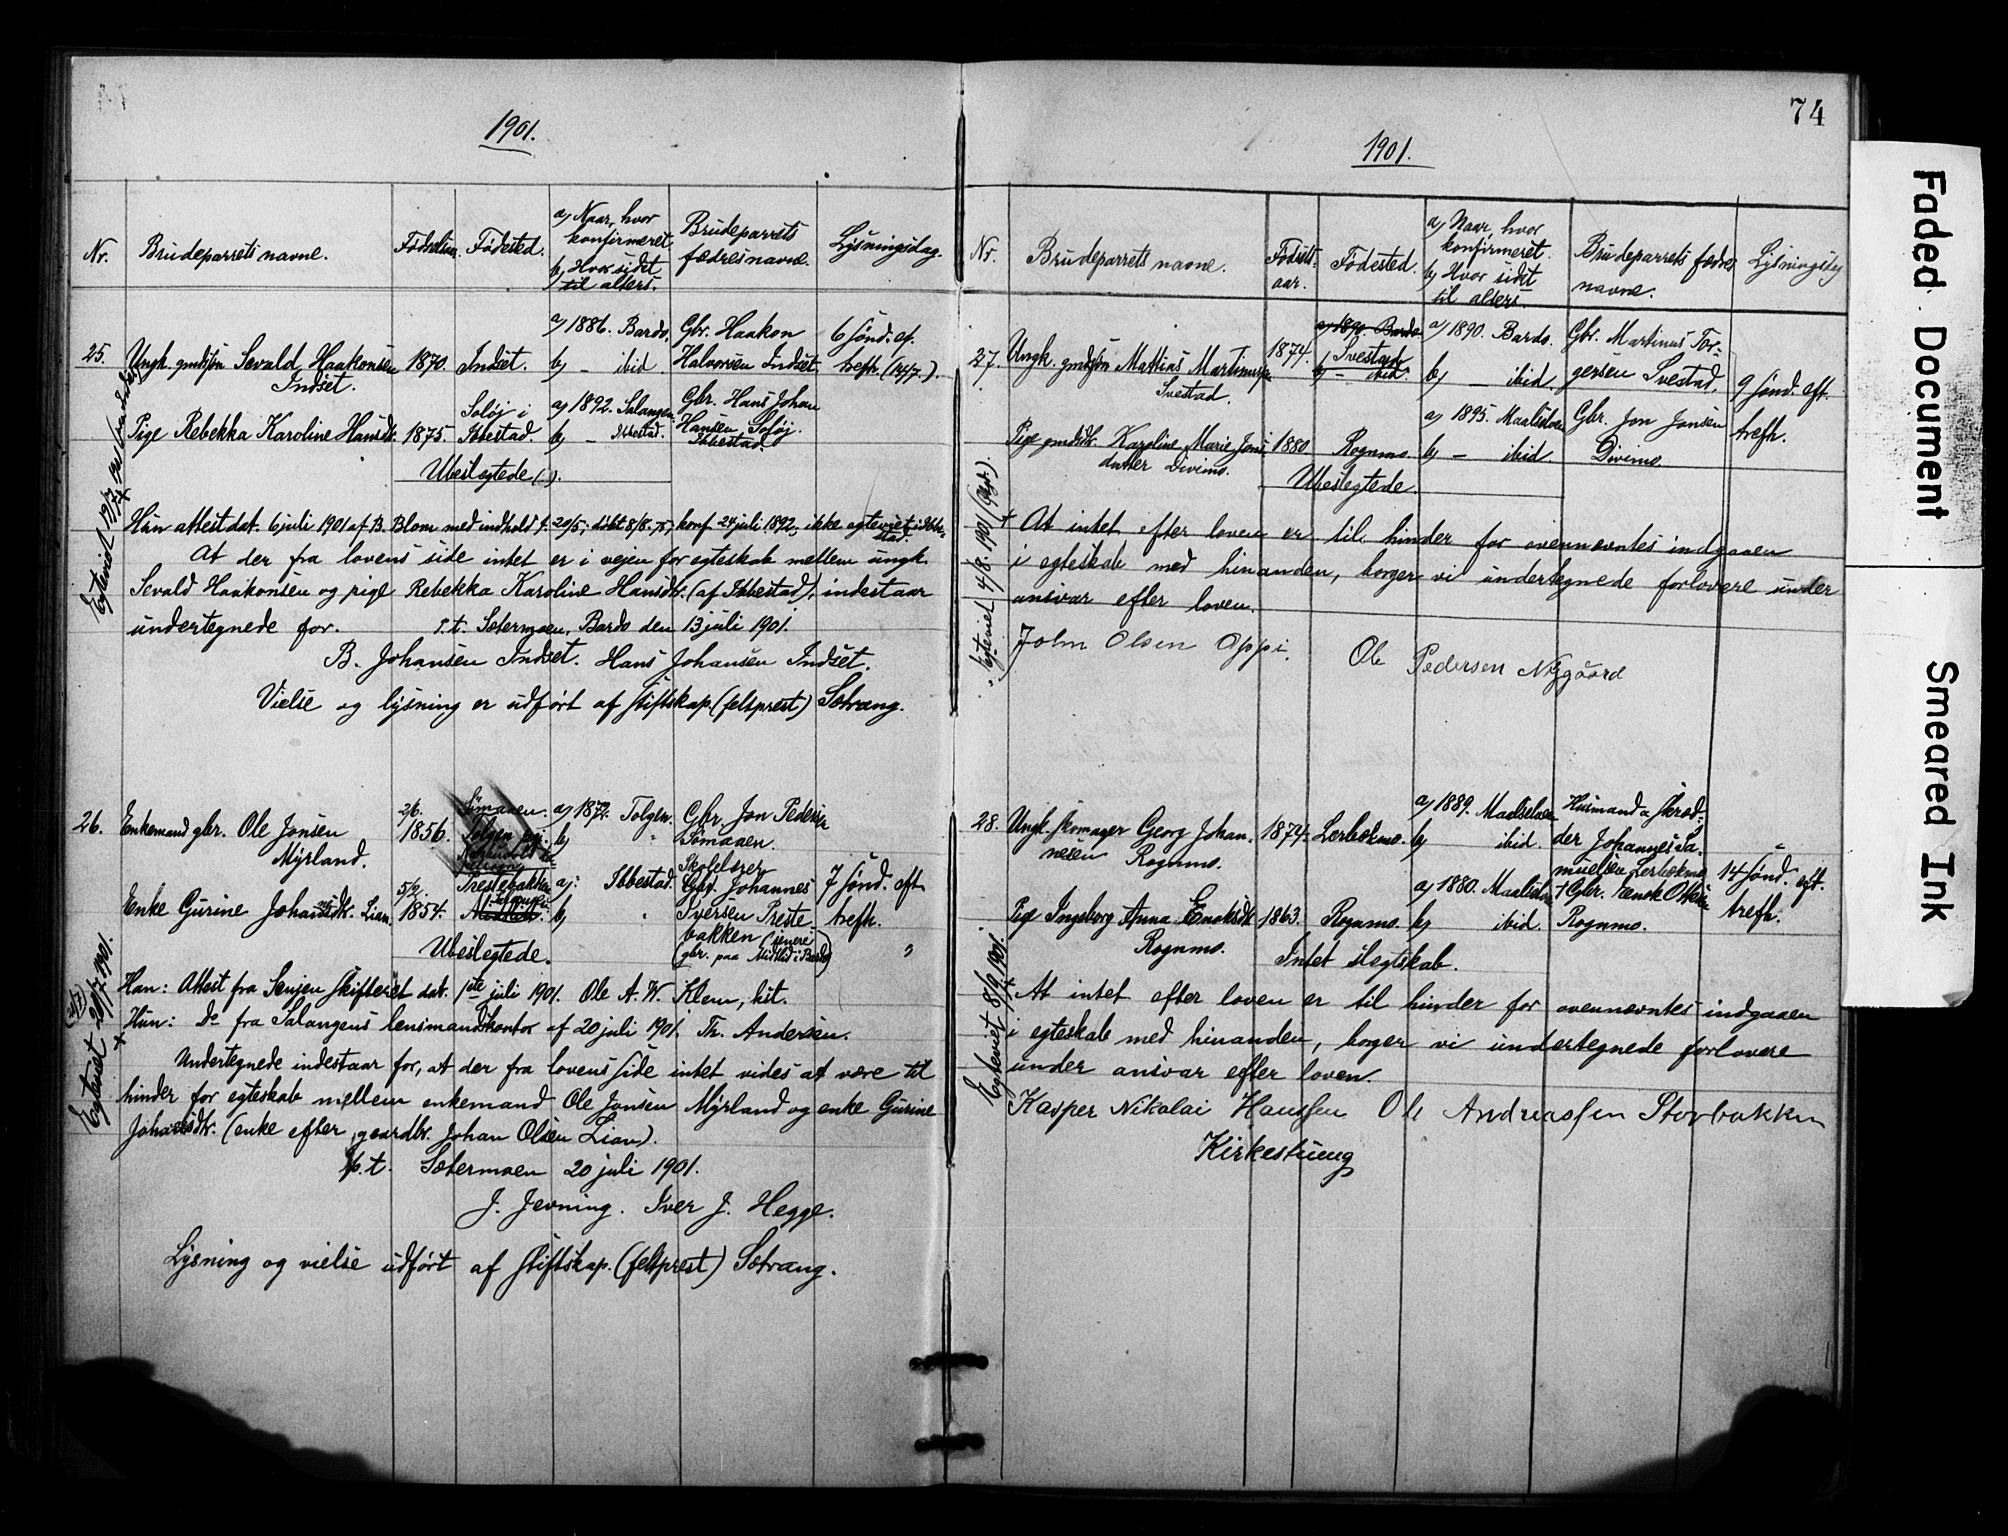 1901.
Nr. Brudeparrets navne. Fødselsaar. Fødested. a) Naar, hvor konfirmeret. b) Hvor sidst til alters. Brudeparrets fædres navne. Lysningsdag.
25. Ungk. gmdsøn Sevald Haakonsen Indset. 1870. Indset. a) 1886. Bardo. b) — ibid. Gbr. Haakon Halvorsen Indset. 6 sønd. ef. trefh. (14/7.).
Pige Rebekka Karoline Hansdtr. 1875. Soløj i Ibbestad. a) 1892. Salangen b) — Ibbestad. Gbr. Hans Johan Hansen Soløj. Ibbestad.
Ubeslegtede (:).
Egteviet 19/7 1901
Hun attest dat. 6 juli 1901 af B. Blom med indhold f. 20/5, døbt 8/8. 75, konf. 24 juli 1892, ikke egteviet i Ibbestad.
At der fra lovens side intet er i vejen for egteskab mellem ungk.
Sevald Haakonsen og pige Rebekka Karoline Hansdtr. (af Ibbestad), indestaar
undertegnede for. P.t. Sætermoen, Bardo den 13 juli 1901.
B. Johansen Indset. Hans Johansen Indset.
Vielse og lysning er udført af stiftskap. (feltprest) Sætrang.
26. Enkemand gbr. Ole Jonsen Myrland. 2/6. 1856. Tømaaen. Tolgen a) 1872. Tolgen. b) " Gbr. Jon Pedersen Tømaaen.
Enke Gurine Johansdtr. Lian. 5/9. 1854. Prestebakken a): Ibbestad. b) " Skolelærer Gbr. Johannes Iversen Prestebakken (senere gbr. paa Midtlid i Bardo) 7 sønd. eft. trefh. "
Ubeslegtede.
Egteviet 20/7 1901.
Han: Attest fra Senjen skifteret dat. 1ste juli 1901. Ole A. W. Klem, kst.
Hun: Do fra Salangens lensmandskontor af 20 juli 1901. Th. Andersen.
Undertegnede indestaar for, at der fra lovens side intet vides at være til
hinder for egteskab mellem enkemand Ole Jonsen Myrland og enke Gurine
Johansdtr. (enke efter gaardbr. Johan Olsen Lian).
p.t. Sætermoen 20 juli 1901.
J. Jevning. Iver J. Hegge.
Lysning og vielse udført af stiftskap. (feltprest) Sætrang.
74
1901.
Nr. Brudeparrets navne. Fødselsaar. Fødested. a) Naar, hvor konfirmeret. b) Hvor sidst til alters Brudeparrets fædres navne. Lysningsdag
27. Ungk. gmdsøn Mathias Martinussen Svestad. 1874. a) 1890. Bardo Svestad b) — ibid. a) 1890. Bardo. b) — ibid. Gbr. Martinus Torgersen Svestad. 9 sønd. eft. trefh.
Pige gmdsdtr. Karoline Marie Jonsdatter Divimo. 1880 Rognmo. a) 1895. Maalselven b) — ibid. Gbr. Jon Jonsen Divemo.
Ubeslegtede.
Egteviet 4/8. 1901
At intet efter loven er til hinder for ovennævntes indgaaen
i egteskab med hinanden, borger vi undertegnede forlovere under
ansvar efter loven.
John Olsen Oppi. Ole Pedersen Nygaard
28. Ungk. skomager Georg Johannesen Rognmo. 1874. Lerbekmo. a) 1889. Maalselven b) ibid. Husmand & skrædder Johannes Samuelsen Lerbekmo 14 sønd. eft. trefh.
Pige Ingeborg Anna Enoksdtr. Rognmo. 1863. Rognmo. a) 1880. Maalselven b) ibid. † Gbr. Enok Ottesen Rognmo.
Intet slegtskab.
Egteviet 8/9 1901.
At intet efter loven er til hinder for ovennævntes indgaaen
i egteskab med hinanden, borger vi undertegnede forlovere
under ansvar efter loven.
Kasper Nikolai Hanssen Ole Andreassen Storbakken
Kirkestueng
Faded Document
Smeared Ink